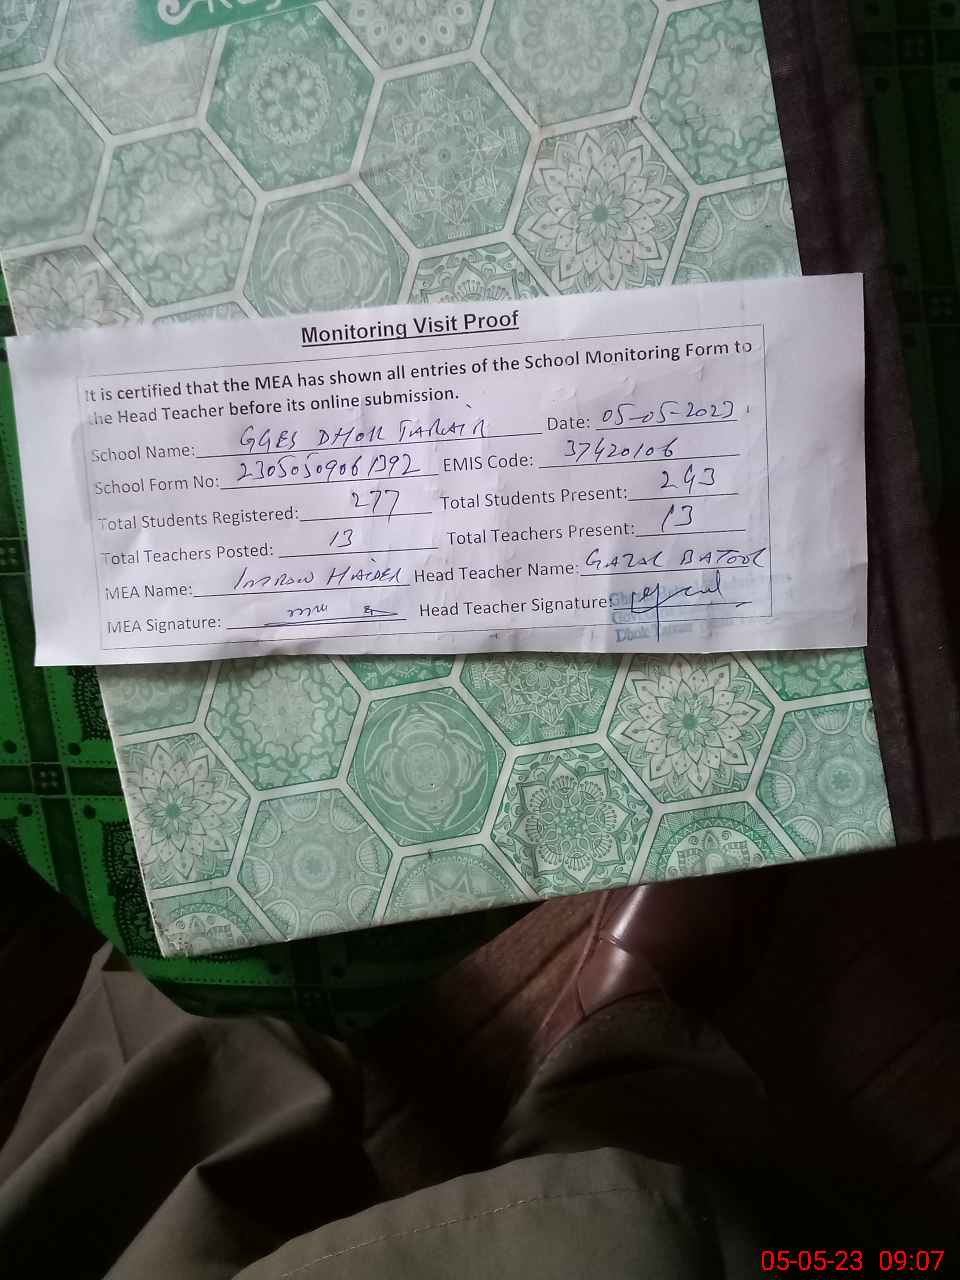 Monitoring Visit Proof
It is certified that the MEA has shown all entries of the School Monitoring Form to
the Head Teacher before its online submission.
School Name: GGES DHOK TARAIR Date: 05-05-2023
School Form No: 23050509061392 EMIS Code: 37420106
Total Students Registered: 277 Total Students Present: 243
Total Teachers Posted: 13 Total Teachers Present: 13
MEA Name: IMRAN HAIDER Head Teacher Name: GAZAL BATOOL
MEA Signature: Head Teacher Signature:
Dhok
05-05-23 09:07